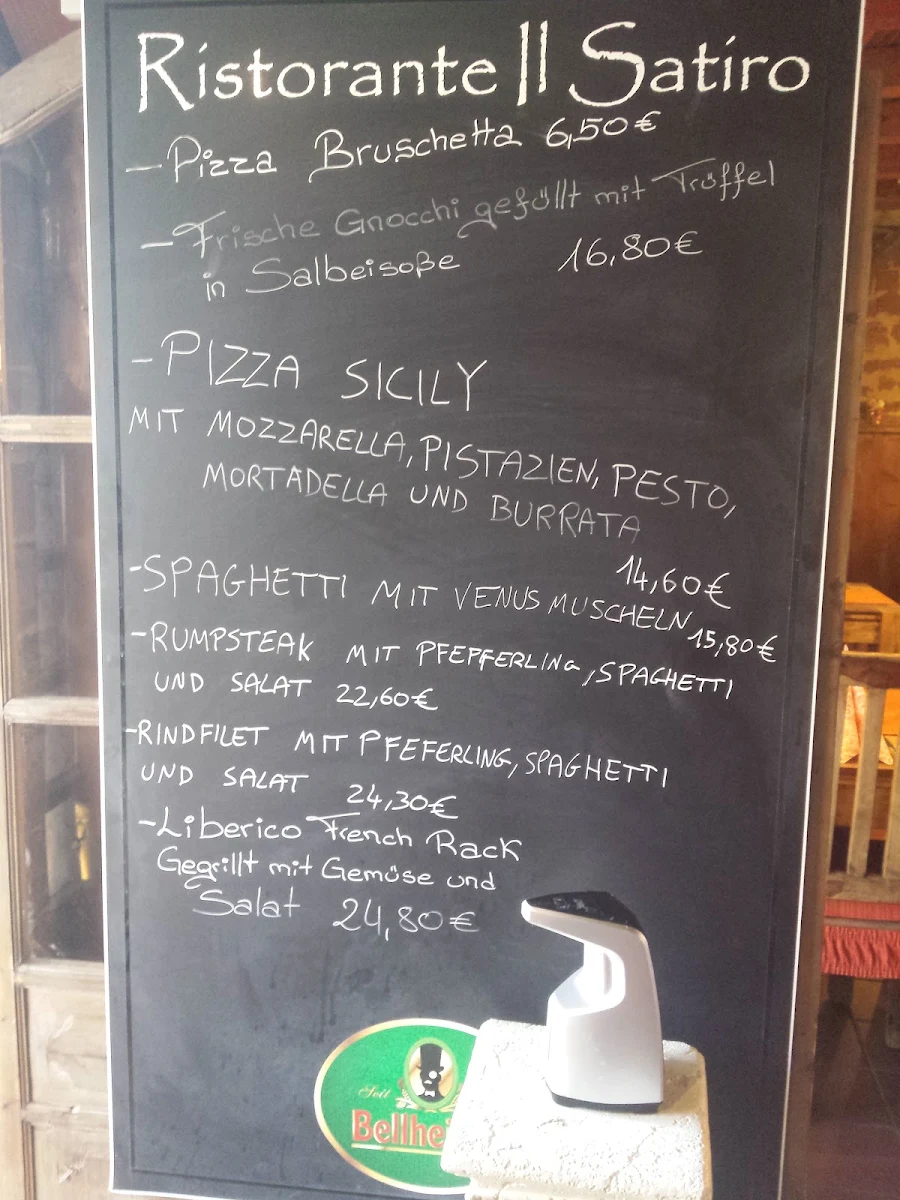 Ristorante Il Satiro
- Pizza Bruschetta 6,50€
- Frische Gnocchi gefüllt mit Trüffel
in Salbeisoße 16,80€
- PIZZA SICILY
MIT MOZZARELLA, PISTAZIEN, PESTO,
MORTADELLA UND BURRATA
14,60€
- SPAGHETTI MIT VENUSMUSCHELN 15,80€
- RUMPSTEAK MIT PFEPFERLING, SPAGHETTI
UND SALAT 22,60€
- RINDFILET MIT PFEFERLING, SPAGHETTI
UND SALAT 24,30€
- Liberico French Rack
Gegrillt mit Gemüse und
Salat 24,80€
Seit